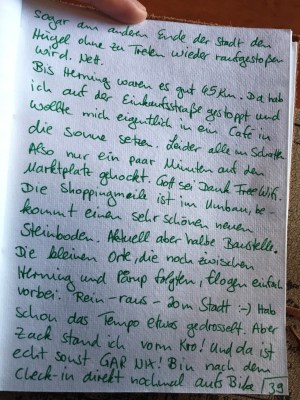 sogar am anderen Ende der Stadt den
Hügel ohne zu Treten wieder raufgestoßen
wird. Nett.
Bis Herning waren es gut 45 km. Da hab
ich auf der Einkaufsstraße gestoppt und
wollte mich eigentlich in ein Café in
die Sonne setzen. Leider alle im Schatten
Also nur ein paar Minuten auf den
Marktplatz gehockt. Gott sei Dank Free Wifi.
Die Shoppingmeile ist im Umbau, be-
kommt einen sehr schönen neuen
Steinboden. Aktuell aber halbe Baustelle.
Die kleinen Orte, die noch zwischen
Herning und folgten, flogen einfach
vorbei. Rein-raus- 20m Stadt :-) Hab
schon das Tempo etwas gedrosselt. Aber
Zack stand ich vorm Kro! Und da ist
echt sonst GAR NIX! Bin nach dem
Check-in direkt nochmal aufs Bike
39